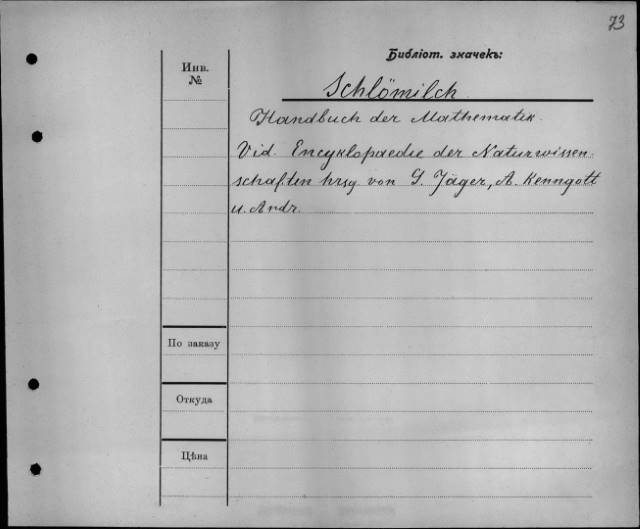 73
Библіот. значекъ:
Инв.
№
Schlömilch
Handbuch der Mathematik.
Vid. Encyklopaedie der Naturwissen-
schaften hrsg. von G. Jäger, A. Kenngott
u. Andr.
По заказу
Откуда
Цѣна